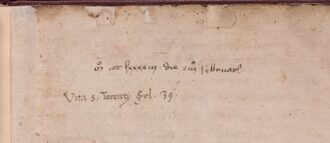 cc lxxxxiij die xiiij februarij
Vita s. Terentij fol. 39.